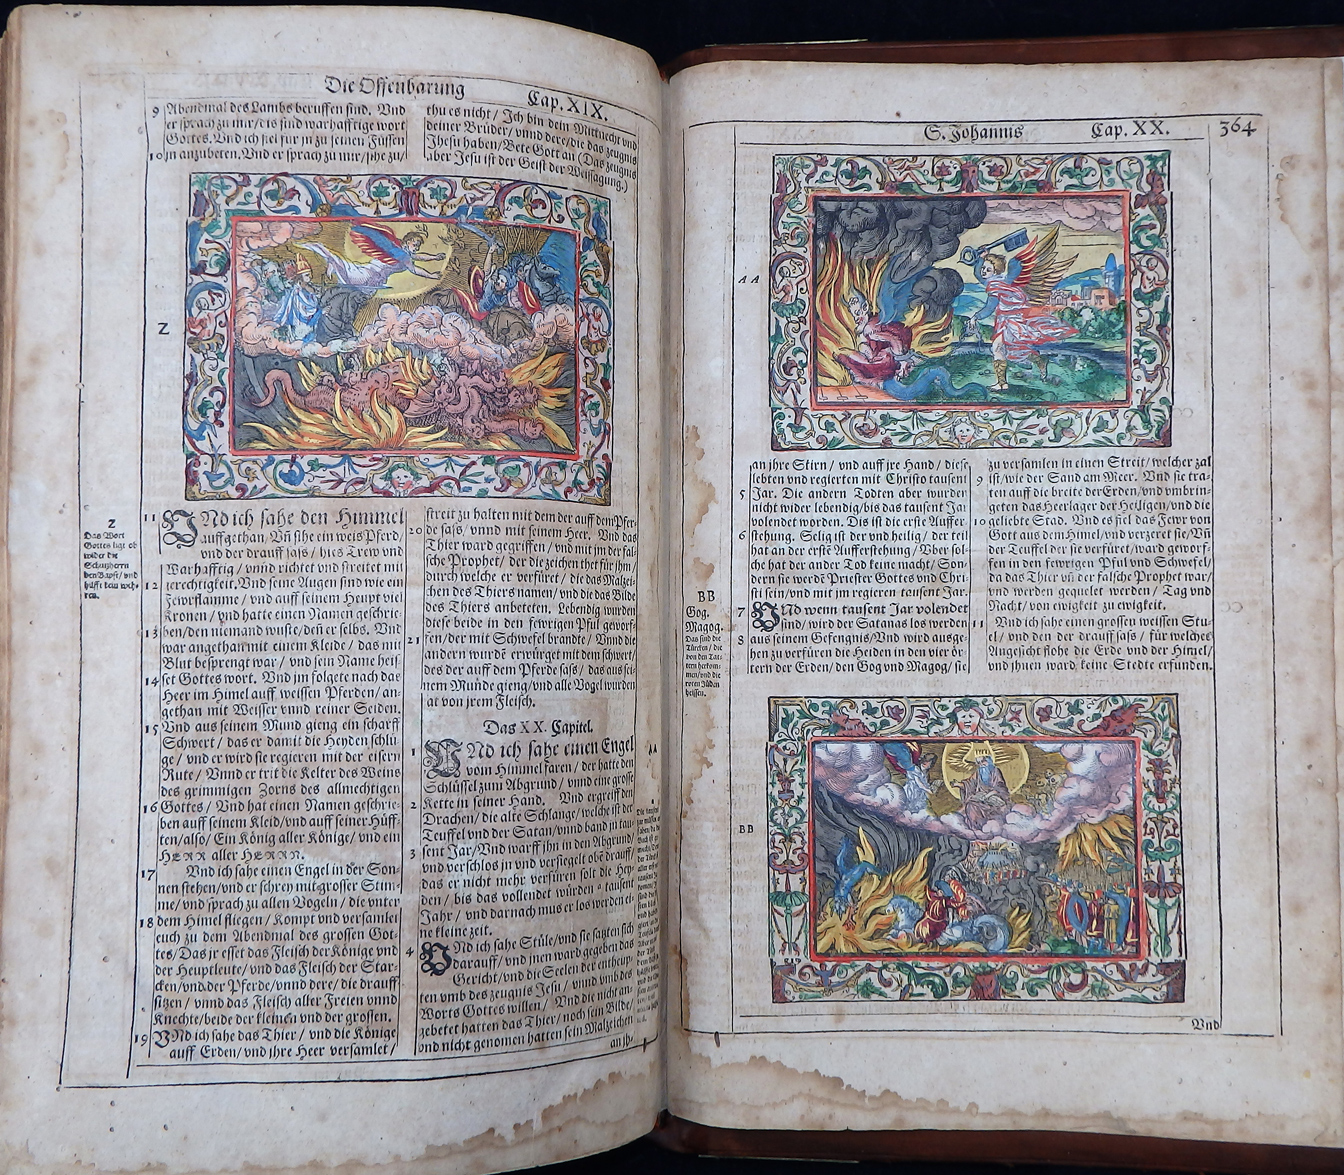 Die Offenbarung
Cap. XIX.
9 Abendmal des Lambs beruffen sind. Vnd
er sprach zu mir/dis sind warhafftige wort
Gottes. Vnd ich fiel fur jn zu seinen Füssen
10 jn anzubeten. Vnd er sprach zu mir/sihe zu/
thu es nicht/ Ich bin dein Mitknecht vnd
deiner Brüder/vnnd dere/die das zeugnis
Jhesu haben/Bete Gott an (Das zeugnis
aber Jesu ist der Geist der Weissagung.)
Z
Z
Das Wort
Gottes ligt ob
wider die
Schutzherrn
11 VNd ich sahe den Himmel
auffgethan/ Vñ sihe ein weis Pferd/
vnd der drauff sass/ hies Trew vnd
Warhafftig/ vnnd richtet vnd streitet mit
12 gerechtigkeit. Vnd seine Augen sind wie ein
Fewrflamme/ vnd auff seinem Heupt viel
Kronen/ vnd hatte einen Namen geschrie-
13 ben/den niemand wuste/deñ er selbs. Vnd
war angethan mit einem Kleide/ das mit
Blut besprengt war/ vnd sein Name heis-
14 set Gottes wort. Vnd jm folgete nach das
Heer im Himel auff weissen Pferden/ an-
gethan mit Weisser vnnd reiner Seiden.
15 Vnd aus seinem Mund gieng ein scharff
Schwert/ das er damit die Heyden schlü-
ge/ vnd er wird sie regieren mit der eisern
Rute/ Vnnd er trit die Kelter des Weins
des grimmigen Zorns des allmechtigen
16 Gottes/ Vnd hat einen Namen geschrie-
ben auff seinem Kleid/vnd auff seiner Hüff-
ten/also/ Ein König aller Könige/ vnd ein
HERR aller HERRN.
17 Vnd ich sahe einen Engel in der Son-
nen stehen/vnd er schrey mit grosser Stim-
me/ vnd sprach zu allen Vogeln/ die vnter
18 dem Himel fliegen/ Kompt vnd versamlet
euch zu dem Abendmal des grossen Got-
tes/ Das jr esset das Fleisch der Könige vnd
der Heuptleute/vnd das Fleisch der Star-
cken/vnd der Pferde/vnnd dere/ die drauff
sitzen/ vnnd das Fleisch aller Freien vnnd
Knechte/beide der kleinen vnd der grossen.
19 VNd ich sahe das Thier/ vnd die Könige
auff Erden/vnd ihre Heer versamlet/
streit zu halten mit dem der auff dem Pfer-
20 de sass/ vnnd mit seinem Heer. Vnd das
Thier ward gegriffen/ vnd mit jm der fal-
sche Prophet/ der die zeichen thet für jhm/
durch welche er verfüret/ die das Malzei-
chen des Thiers namen/ vnd die das Bilde
des Thiers anbeteten. Lebendig wurden
diese beide in den fewrigen Pful geworf-
21 fen/der mit Schwefel brandte/ Vnnd die
andern wurdē erwürget mit dem schwert/
des der auff dem Pferde sass/ das aus sei-
nem Munde gieng/vnd alle Vogel wurden
sat von jrem Fleisch.
Das XX. Capitel.
1 VNd ich sahe einen Engel
AA
vom Himmel faren/ der hatte den
Schlüssel zum Abgrund/ vnnd eine grosse
2 Kette in seiner Hand. Vnd ergreiff den
Drachen/ die alte Schlange/ welche ist der
Teuffel vnd der Satan/vnnd band jn tau-
3 sent Jar/Vnd warff jhn in den Abgrund/
vnd verschlos jn vnd versiegelt obē drauff/
das er nicht mehr verfüren solt die Hey-
den/ bis das vollendet würden a tausent
Jahr/ vnd darnach mus er los werden ei-
ne kleine zeit.
4 VNd ich sahe Stüle/vnd sie satzten sich
darauff/ vnd jnen ward gegeben das
Gericht/ vnd die Seelen der entheup-
ten vmb des zeugnis Jesu/ vnnd vmb des
Worts Gottes willen/ Vnd die nicht an-
gebetet hatten das Thier/noch sein Bilde/
vnd nicht genomen hatten sein Malzeichen
an jh-
S. Johannis
Cap. XX.
364
AA
an jhre Stirn/ vnd auff jre Hand/ diese
lebten vnd regierten mit Christo tausent
5 Jar. Die andern Todten aber wurden
nicht wider lebendig/bis das tausent Jar
volendet worden. Dis ist die erste Auffer-
6 stehung. Selig ist der vnd heilig/ der teil
hat an der erstē Aufferstehung/ Vber sol-
che hat der ander Tod keine macht/ Son-
dern sie werdē Priester Gottes vnd Chri-
sti sein/vnd mit jm regieren tausent Jar.
BB
Gog.
Magog.
Das sind die
Türcken/ die
von den Tat-
tern herkom-
men/vnd die
roten Jüden
heissen.
7 VNd wenn tausent Jar volendet
sind/wird der Satanas los werden
8 aus seinem Gefengnis/Vnd wird ausge-
hen zu verfüren die Heiden in den vier ör-
tern der Erden/den Gog vnd Magog/ sie
zu versamlen in einen Streit/welcher zal
9 ist/wie der Sand am Meer. Vnd sie tra-
ten auff die breite der Erden/vnd vmbrin-
geten das Heerlager der Heiligen/vnd die
10 geliebte Stad. Vnd es fiel das Fewr von
Gott aus dem Himel/vnd verzeret sie/ Vñ
der Teuffel der sie verfüret/ward geworf-
fen in den fewrigen Pful vnd Schwefel/
da das Thier vñ der falsche Prophet war/
vnd werden gequelet werden/ Tag vnd
Nacht/ von ewigkeit zu ewigkeit.
11 Vnd ich sahe einen grossen weissen Stu-
el/ vnd den der drauff sass/ für welches
Angesicht flohe die Erde vnd der Himel/
vnd jhnen ward keine Stedte erfunden.
BB
Vnd